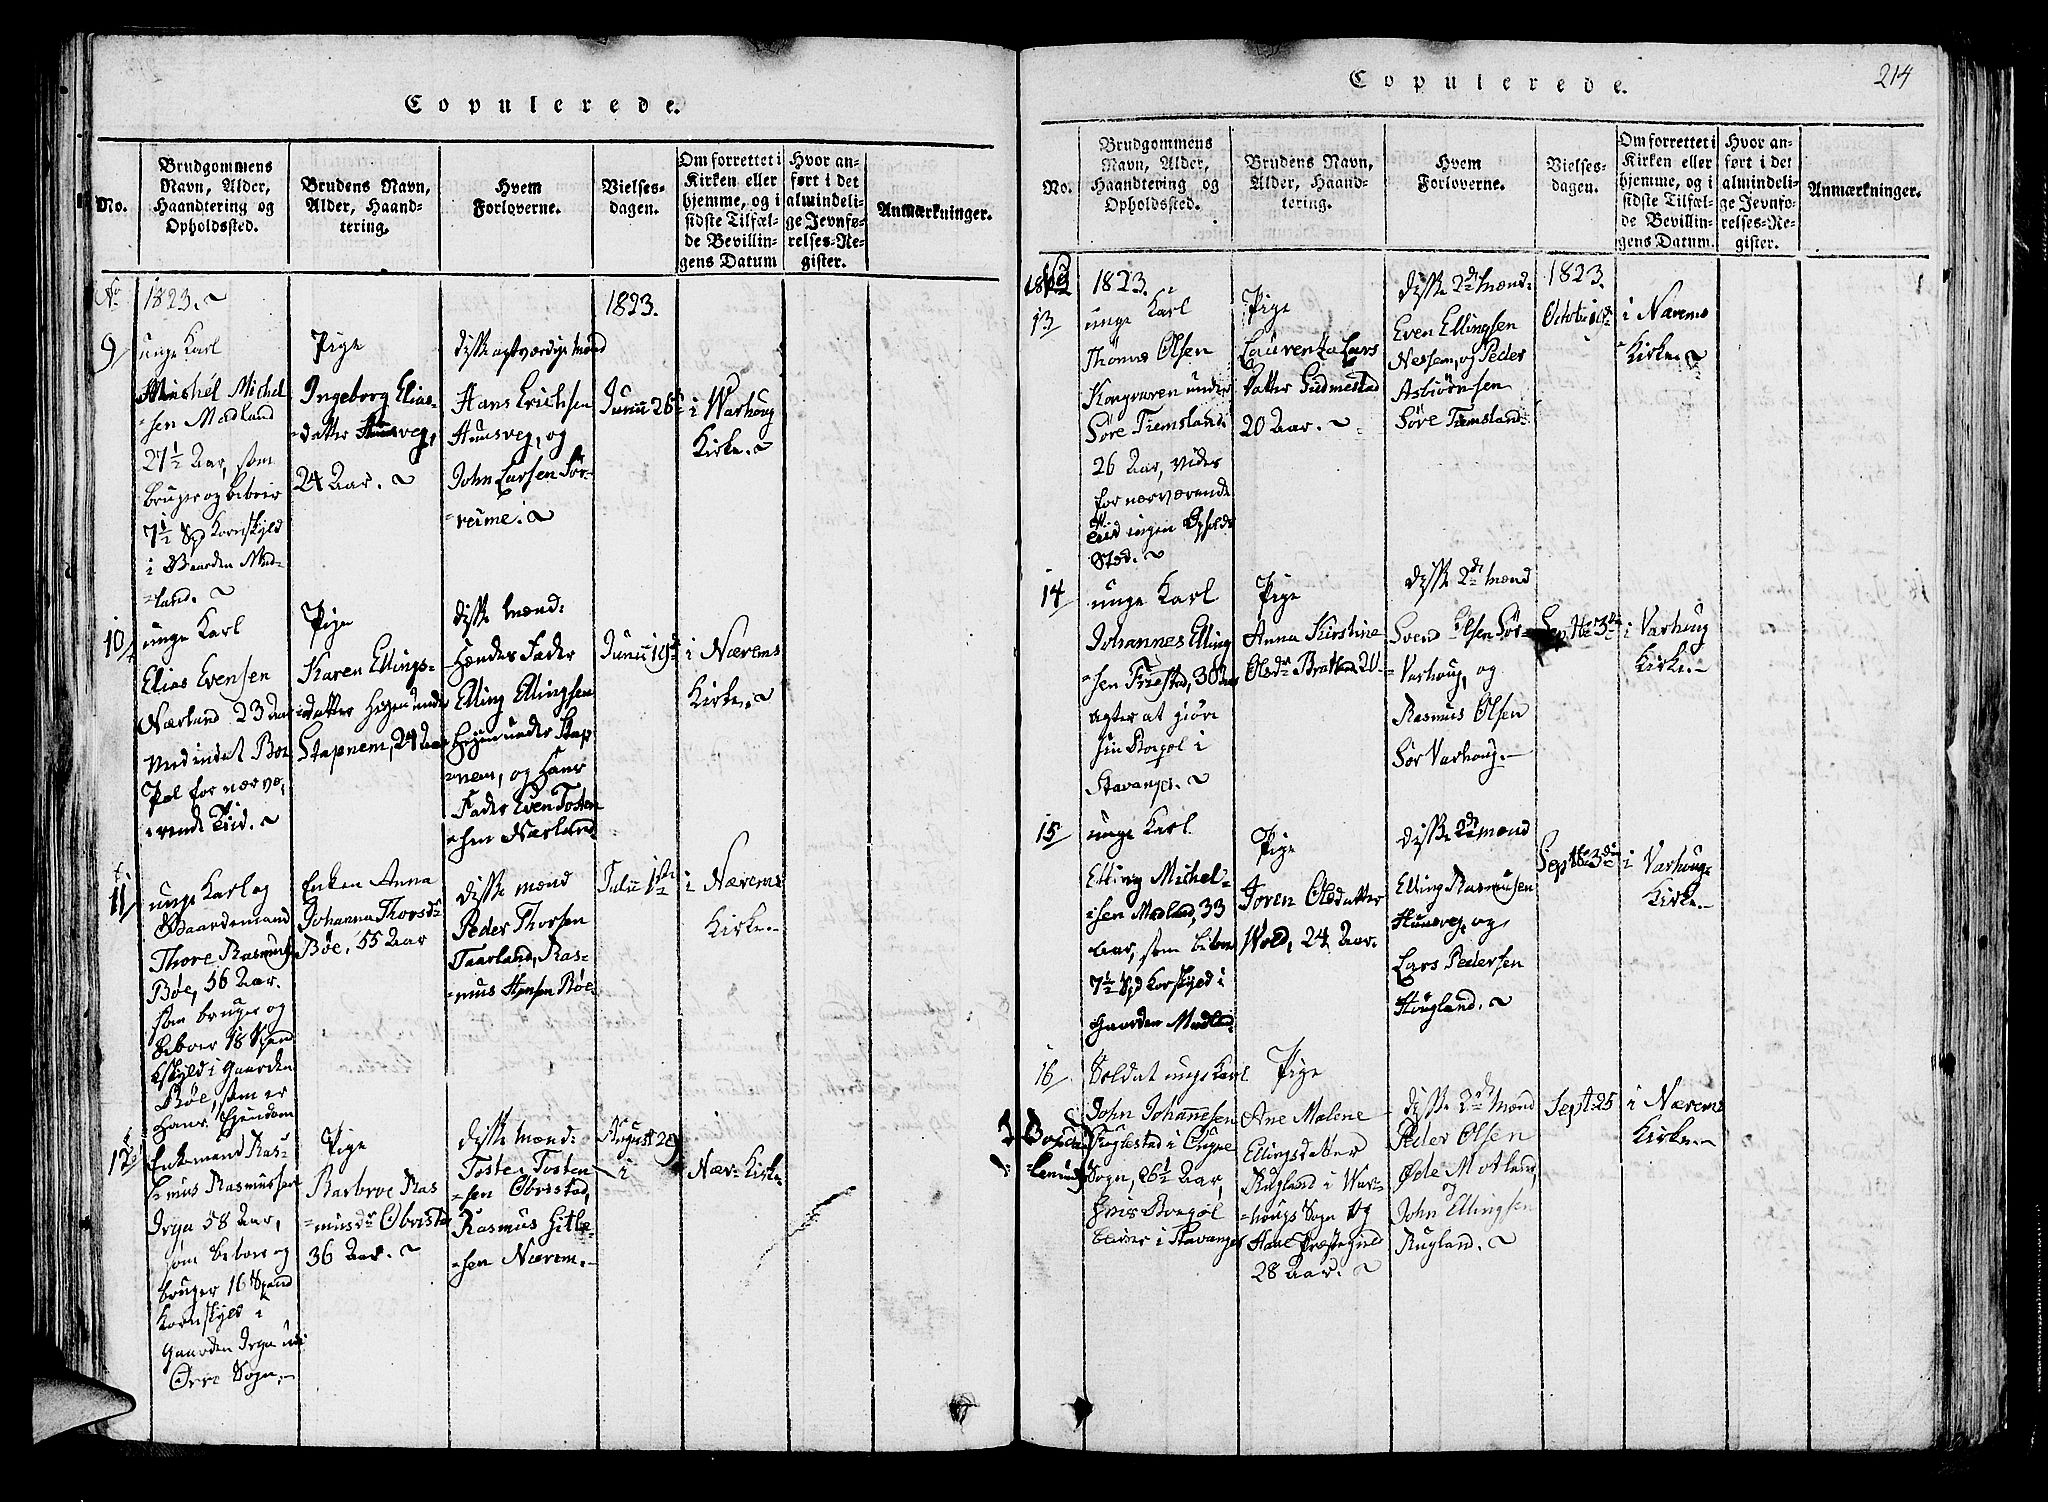 Copulerede.
No.
Brudgommens
Navn, Alder,
Haandtering og
Opholdssted.
Brudens Navn,
Alder, Haand-
tering.
Hvem
Forloverne.
Vielses-
dagen.
Om forrettet i
Kirken eller
hjemme, og i
sidste Tilfæl-
de Bevillin-
gens Datum
Hvor an-
ført i det
almindeli-
ge Jevnfø-
relses-Re-
gister.
Anmærkninger.
No
1823.
1823.
9
unge Karl
Michel Michel
-sen Mædland
27½ Aar, som
bruger og beboer
7½ Sp Kornskyld
i Gaarden Mæd-
-land.
Pige
Ingeborg Elias-
-datter Huusveg,
24 Aar.
disse agtværdige Mænd
Hans Erichsen
Huusveg, og
John Larsen Sør-
-reime.
Junii 26
i Warhoug
Kirke.
10
unge Karl
Elias Evensen
Nærland 23 Aar
Med indet Bo
Pæl for nærvæ-
-rende Tiid.
Pige
Karen Ellings-
datter Høyen under
Stapnem, 24 Aar
disse Mænd:
Hendes Fader
Elling Ellingsen
Høyen under Stap
-nem, og Hans
Fader Even Tosten
-sen Nærland
Junii 19de
i Nærems
Kirke.
11
unge Karl og
Gaardemand
Thore Rasmusen
Bøe, 56 Aar.
som bruger og
beboer 18 Spand
skyld i Gaarden
Bøe, som er
Hans Ejendom
Enken Anna
Johanna Thorsdr
Bøe, 55 Aar
disse Mænd
Peder Thorsen
Taarland, Ras-
-mus Hansen Bøe
Julii 1ste
i Nærems
Kirke.
12
Enkemand Ras-
-mus Rasmussen
Irga 58 Aar,
som beboer og
bruger 16 Spand
Kornskyld i
Gaarden Irga udi
Orre Sogn.
Pige
Barbroe Ras
-musdr Obrestad
36 Aar.
disse Mænd:
Tosten Tosten-
-sen Obrestad,
Rasmus Gitle-
-sen Nærem.
August 29
i
Nær- Kirke
Copulerede.
214
No.
Brudgommens
Navn, Alder,
Haandtering og
Opholdssted.
Brudens Navn,
Alder, Haand-
tering.
Hvem
Forloverne.
Vielses-
dagen.
Om forrettet i
Kirken eller
hjemme, og i
sidste Tilfæl-
de Bevillin-
gens Datum.
Hvor an-
ført i det
almindeli-
ge Jevnfø-
relses-Re-
gister.
Anmærkninger.
1823.
1823.
13
unge Karl
Thomas Olsen
Kongvaren under
Søre Tiemsland
26 Aar, vides
for nærværende
Tiid ingen Opholds
Sted.
Pige
Laurentza Lars
Datter Gudmestad
20 Aar.
disse 2de Mænd:
Even Ellingsen
Nessem, og Peder
Asbiörnsen
Søre Tiemsland
October 10de
i Nærems
Kirke.
14
unge Karl
Johannes Elling
-sen Friestad, 38 Aar
agter at giöre
sin Boepæl i
Stavanger.
Pige
Anna Kirstine
Olsdr Bratland 20
disse 2de Mænd
Svend Olsen Sör-
-Varhoug, og
Rasmus Olsen
Sör Varhoug.
Septbe 3die
i Varhoug
Kirke.
15
unge Karl.
Elling Michel-
-sen Mædland, 33
Aar, som beboer
7½ Spd Korskyld i
Gaarden Mædland
Pige
Joren Olsdatter
Wold, 24 Aar.
disse 2de Mænd
Elling Rasmusen
Huusveg, og
Lars Pedersen
Höugland.
Septbe 3die
i Varhoug
Kirke.
16
Soldat unge Karl
John Johanesen
Fuglestad i Ougne
Sogn, 26½ Aar,
Hvis Boepæl
bliver i Stavanger
Pige
Ane Malene
Ellingsdatter
Rugland i War-
-hougs Sogn og
Haae Præstegield
28 Aar.
disse 2de Mænd
Peder Olsen
Øde Motland,
og
John Ellingsen
Rugland.
Septb 25
i Nærems
Kirke.